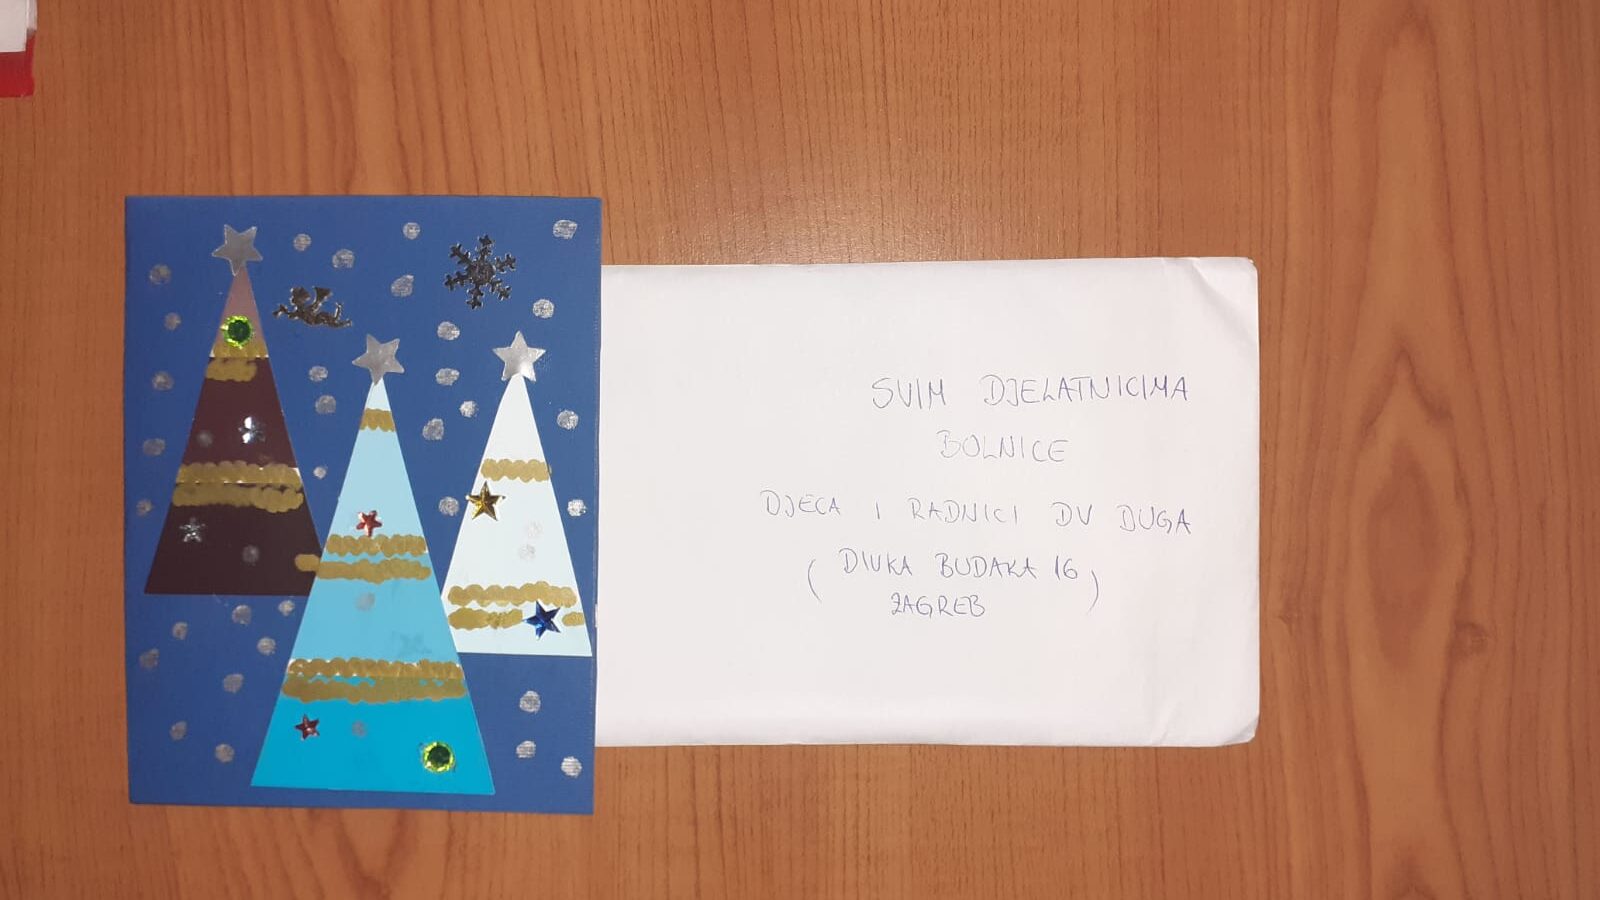 SVIM DJELATNICIMA
BOLNICE
DJECA I RADNICI DV DUGA
(DIVKA BUDAKA 16
ZAGREB)